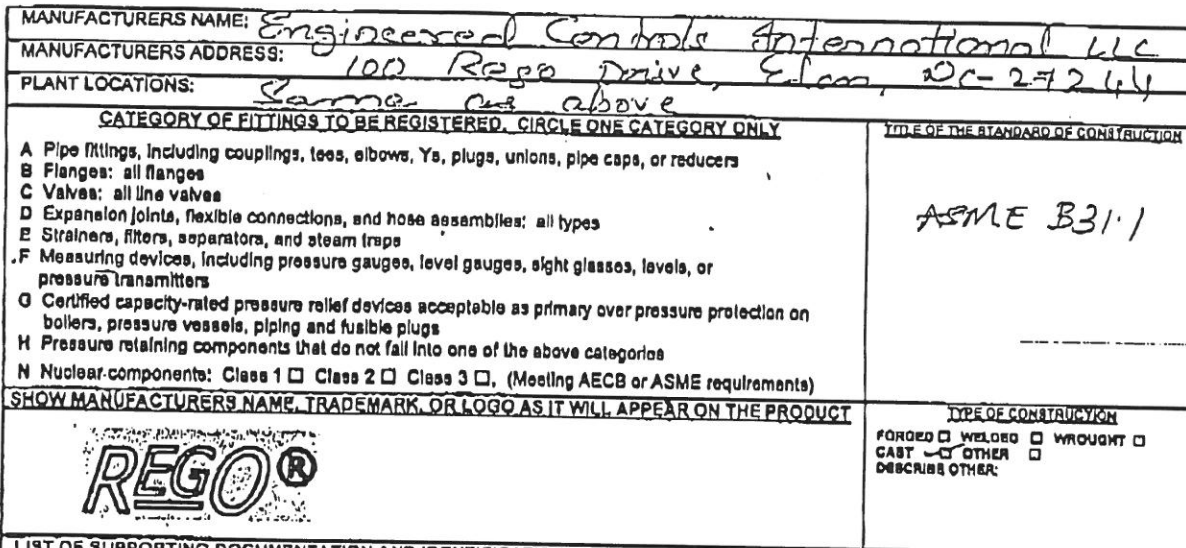 MANUFACTURERS NAME: Engineered Controls International LLC
MANUFACTURERS ADDRESS: 100 Rego Drive, Elon, NC-27244
PLANT LOCATIONS: Same as above
CATEGORY OF FITTINGS TO BE REGISTERED. CIRCLE ONE CATEGORY ONLY
A Pipe fittings, including couplings, tees, elbows, Ys, plugs, unions, pipe caps, or reducers
B Flanges: all flanges
C Valves: all line valves
D Expansion joints, flexible connections, and hose assemblies: all types
E Strainers, filters, separators, and steam traps
F Measuring devices, including pressure gauges, level gauges, sight glasses, levels, or
pressure transmitters
G Certified capacity-rated pressure relief devices acceptable as primary over pressure protection on
boilers, pressure vessels, piping and fusible plugs
H Pressure retaining components that do not fall into one of the above categories
N Nuclear components: Class 1 □ Class 2 □ Class 3 □, (Meeting AECB or ASME requirements)
TITLE OF THE STANDARD OF CONSTRUCTION
ASME B31.1
SHOW MANUFACTURERS NAME, TRADEMARK, OR LOGO AS IT WILL APPEAR ON THE PRODUCT
REGO®
TYPE OF CONSTRUCTION
FORGED □ WELDED □ WROUGHT □
CAST □ OTHER □
DESCRIBE OTHER:
LIST OF SUPPORTING DOCUMENTATION AND